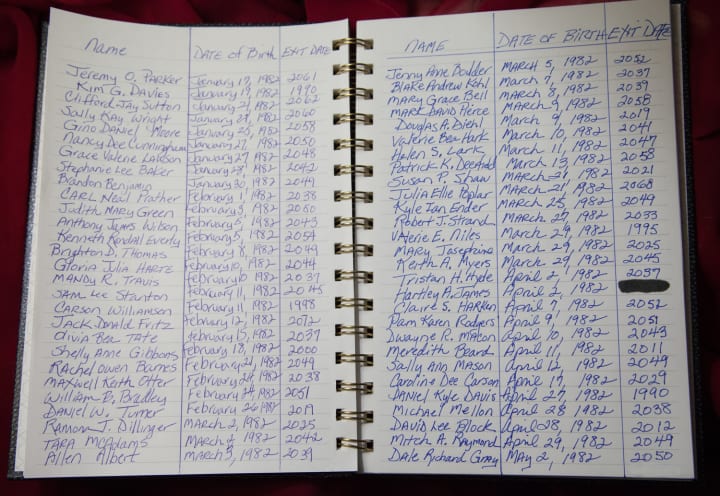 Name DATE OF Birth EXIT DATE
Jeremy O. PARKER January 17, 1982 2061
Kim G. DAVIES January 19, 1982 1990
Clifford Jay Sutton January 21, 1982 2062
Sally Kay Wright January 24, 1982 2060
Gino Daniel Moore January 26, 1982 2058
Nancy Dee Cunningham January 27, 1982 2050
Grace Valerie Lawson January 27, 1982 2048
Stephanie Lee Baker January 28, 1982 2042
Brandon Benjamin January 30, 1982 2049
CARL Neal Mather February 1, 1982 2038
Judith MARY Green February 3, 1982 2060
Anthony James Wilson February 5, 1982 2043
Kenneth Randall Everly February 5, 1982 2054
Brighton D. THOMAS February 8, 1982 2049
Gloria Julia HARTE February 10, 1982 2044
MANDY R. TRAVIS February 10 1982 2037
SAM Lee Stanton February 11, 1982 2045
CARSON Williamson February 11, 1982 1998
JACK Donald Fritz February 12, 1982 2072
Olivia Bea TATE February 15, 1982 2037
Shelly Anne Gibbons February 18, 1982 2000
RAchel Owen Barnes February 21, 1982 2049
MAXWELL Keith Otter February 24, 1982 2038
William B. Bradley February 24, 1982 2051
DANIEL W. Turner February 26 1982 2019
Ramon J. Dillinger MARCH 2, 1982 2025
TARA McAdams March 4, 1982 2042
Allen Albert MARCH 3, 1982 2039
NAME DATE OF BIRTH EXIT DATE
Jenny Anne Boulder MARCH 5, 1982 2052
BlAKe Andrew Kohl MARCH 7, 1982 2037
MARY Grace Bell MARCH 8, 1982 2039
MARK DAVID Pierce MARCH 9, 1982 2058
Douglas A. Diehl March 9, 1982 2019
Valerie Bea Hark March 10, 1982 2041
Helen S. Lark March 11, 1982 2047
Patrick K. March 13, 1982 2058
Susan P. Shaw MARCH 21, 1982 2021
Julia Ellie Poplar MARCH 21, 1982 2068
Kyle Ian Ender MARCH 25, 1982 2049
Robert J. Strand MARCH 27 1982 2033
Valerie E. Niles March 29, 1982
MARY Josephine March 29, 1982 2025
Keith A. Myers March 29 1982 2045
Tristan H. Hyde April 2, 1982 2037
Hartley A. JAMES April 2, 1982
Claire S. HARKEN April 7, 1982 2052
Pam Karen Rodgers April 9, 1982 2051
Dwayne R. MACON April 10, 1982 2043
Meredith Beard April 11, 1982 2011
Sally Ann MASON April 12, 1982 2049
Caroline Dee Carson April 17, 1982 2029
DANIEL Kyle DAVIS April 27, 1982 1990
Michael Mellon April 28, 1982 2038
DAVID Lee Block April 28, 1982 2012
Mitch A. Raymond April 29, 1982 2049
Dale Richard Gray MAY 2, 1982 2050